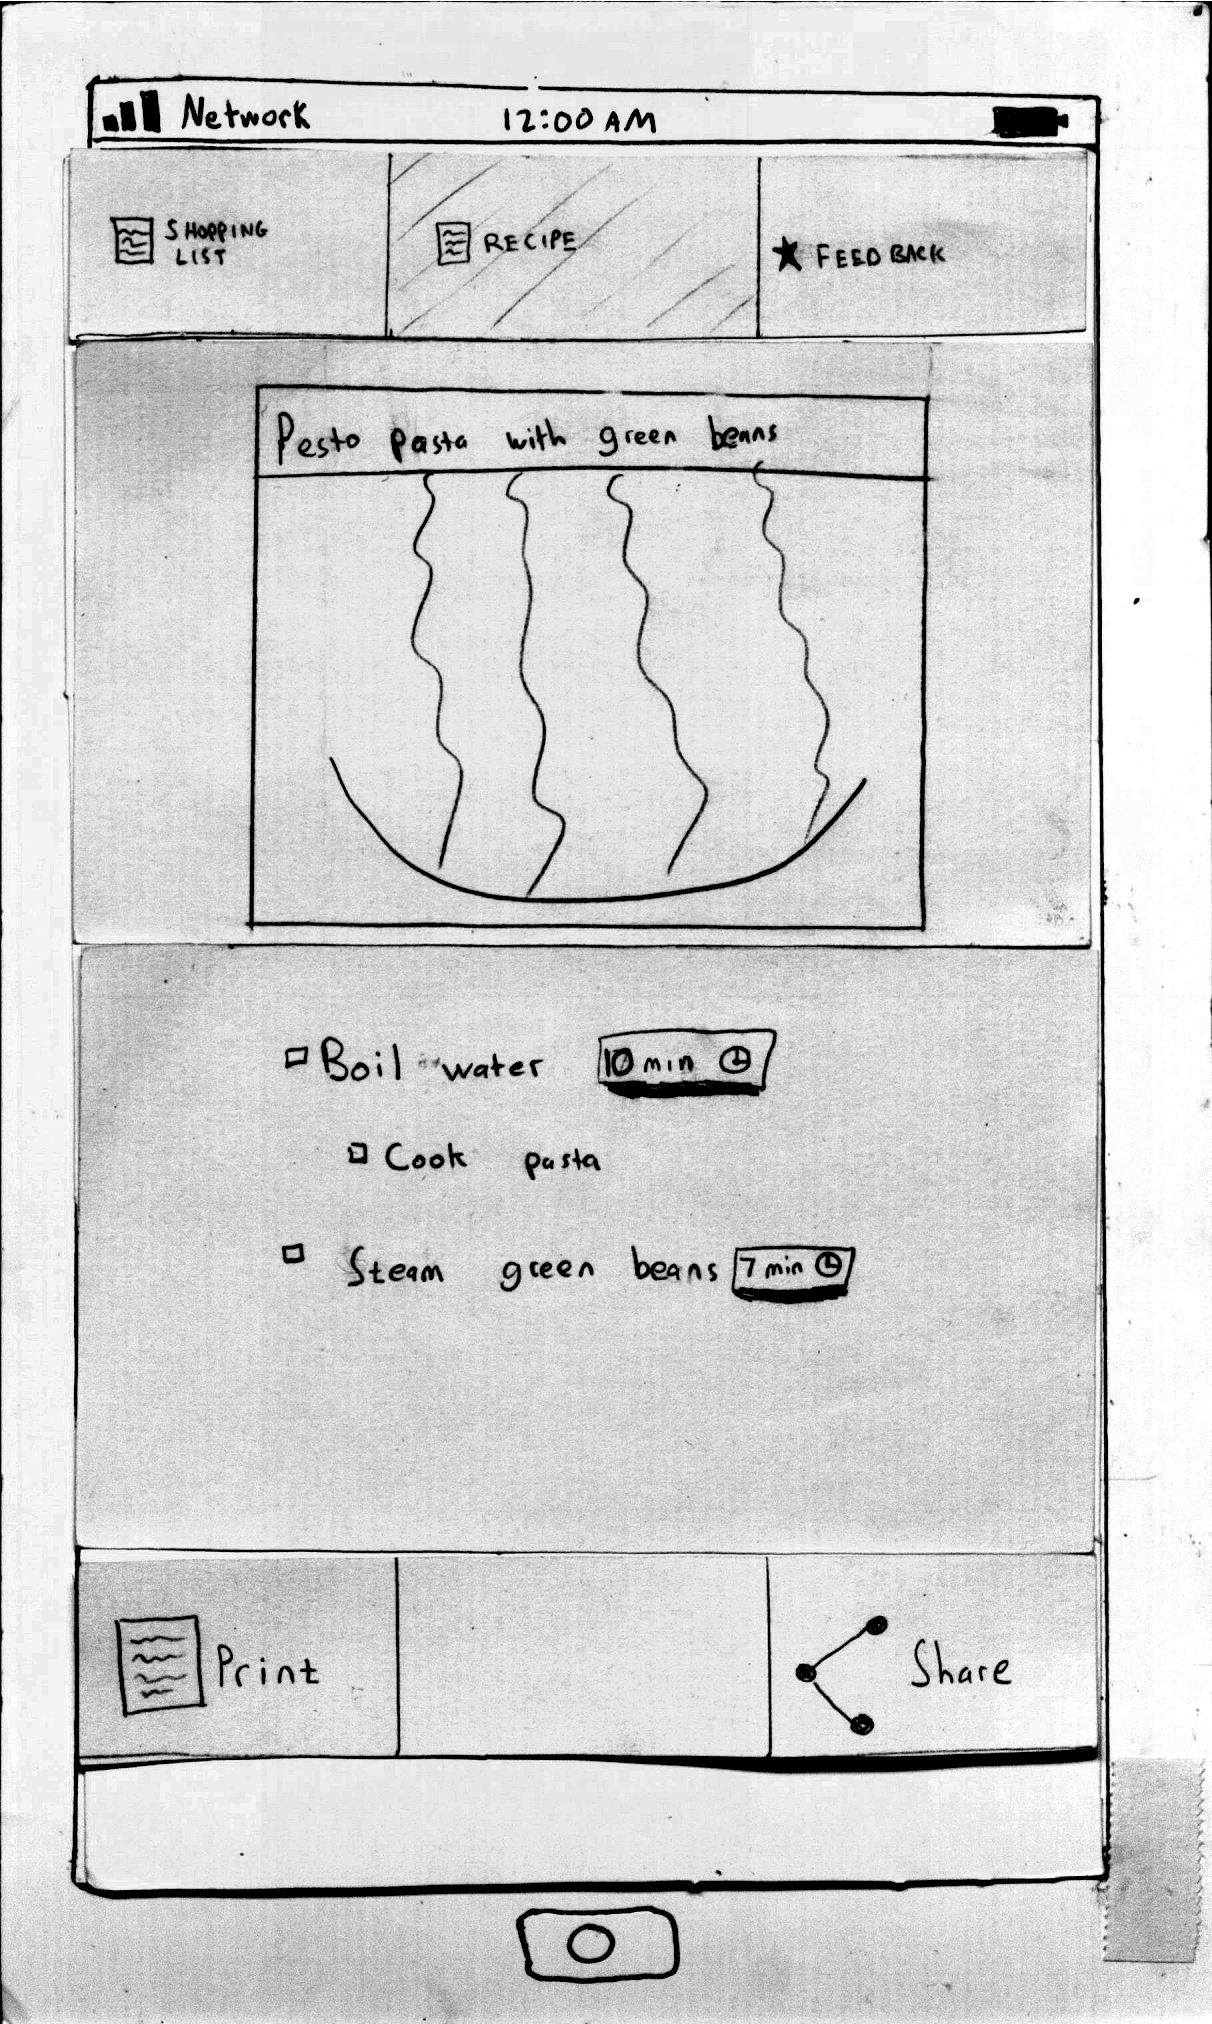 Network 12:00 AM
SHOPPING
LIST
RECIPE
FEEDBACK
Pesto pasta with green beans
Boil water 10 min
Cook pasta
Steam green beans 7 min
Print
Share